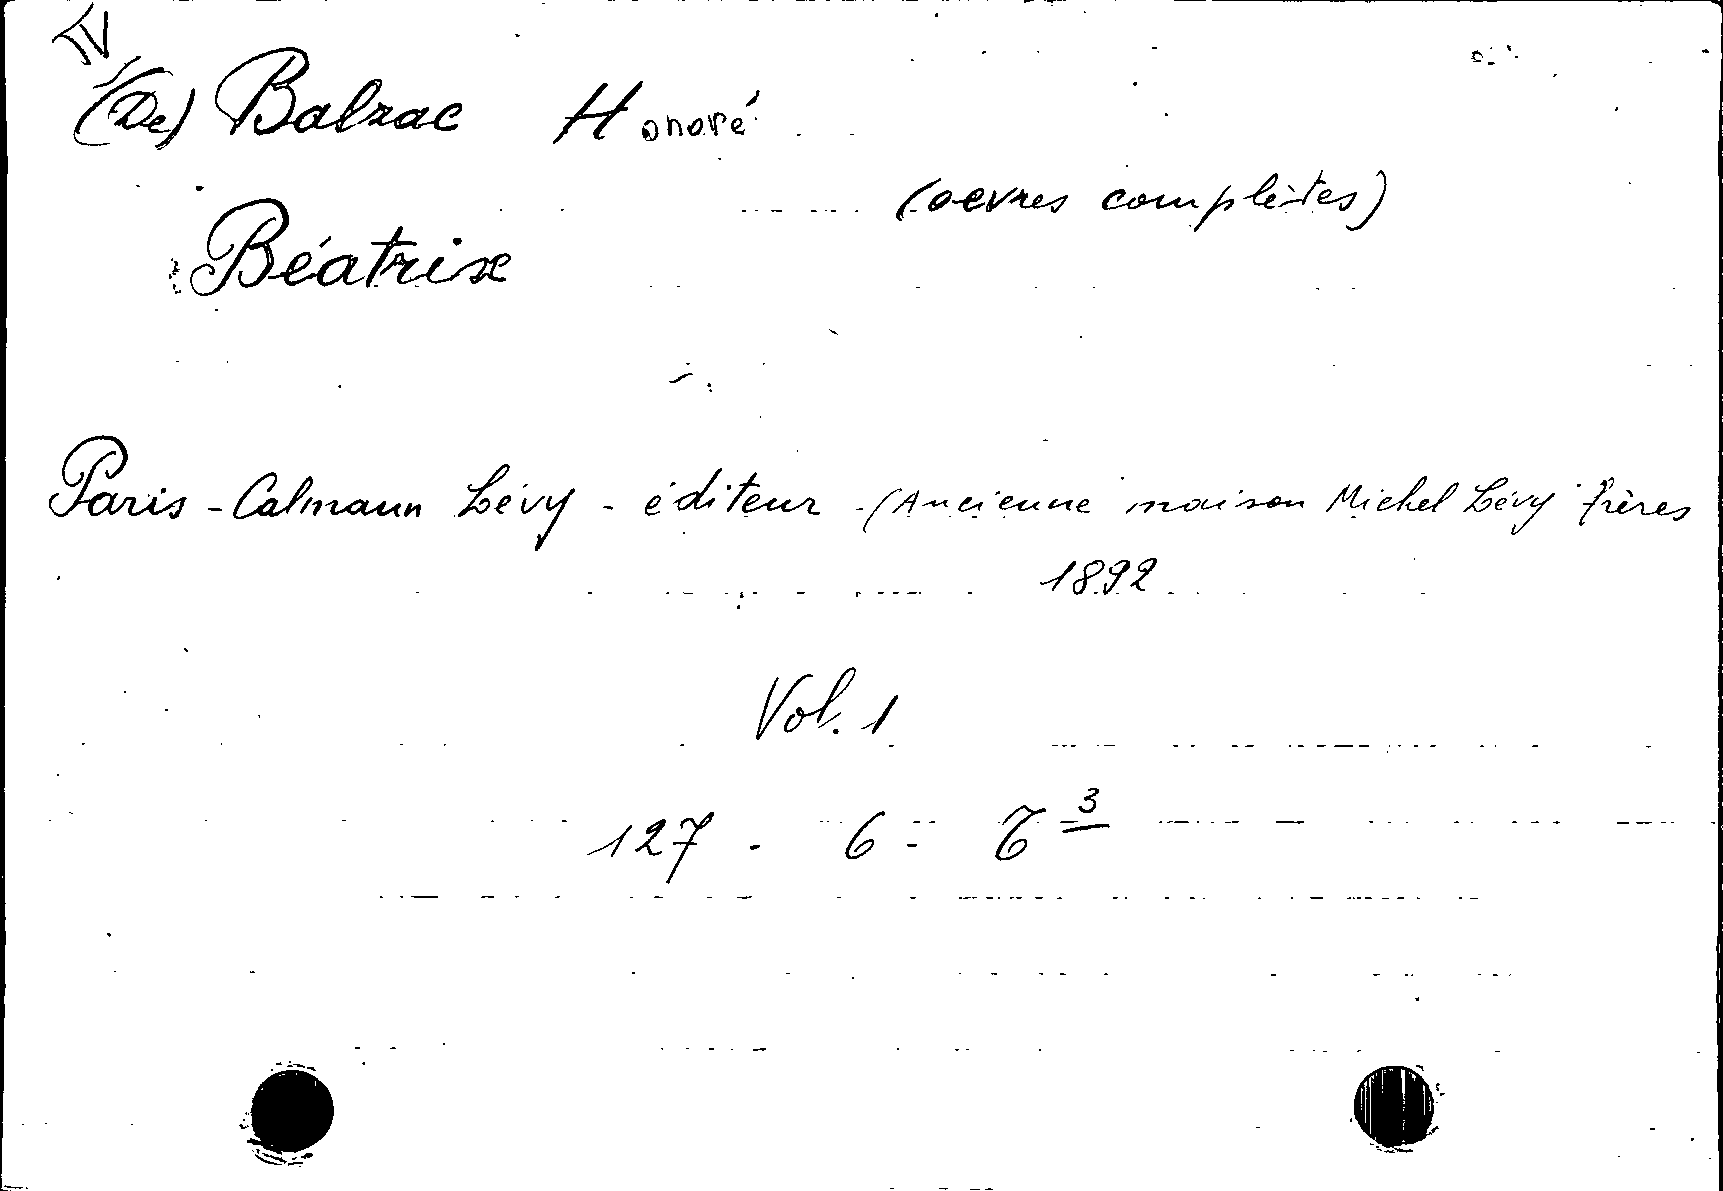 IV
(De) Balzac Honoré
(oevres complètes)
Béatrix
Paris - Calmann Lévy - éditeur - (Ancienne maison Michel Lévy frères
1892
Vol. 1
127 - 6 - 3